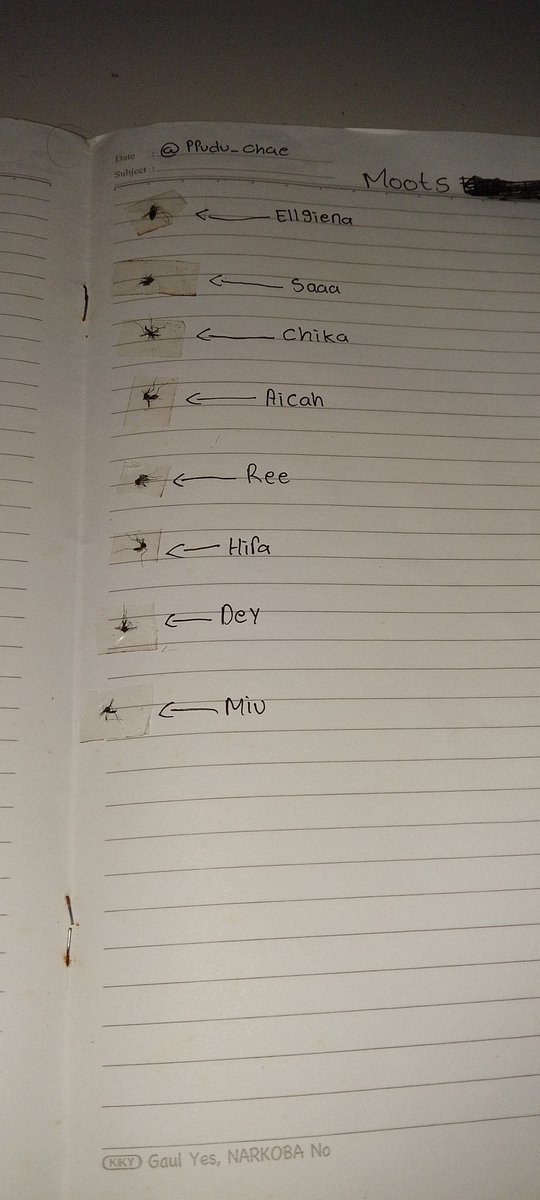 Date : @ PPudu_chae
Subject :
Moots
Ellgiena
Saaa
Chika
Aicah
Ree
Hifa
Dey
Miu
KIKY Gaul Yes, NARKOBA No